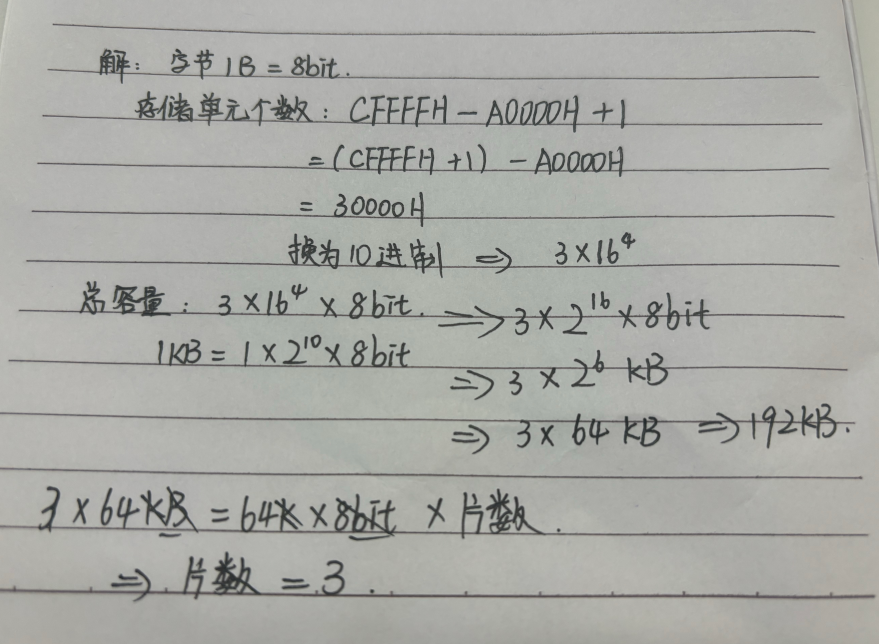 解：字节1B=8bit.
存储单元个数：CFFFFH-A0000H+1
=(CFFFFH+1)-A0000H
=30000H
换为10进制 ⇒ 3×16⁴
总容量：3×16⁴×8bit. ⇒ 3×2¹⁶×8bit
1KB=1×2¹⁰×8bit
⇒ 3×2⁶ KB
⇒ 3×64 KB ⇒ 192KB.
3×64KB=64K×8bit×片数.
⇒. 片数=3.